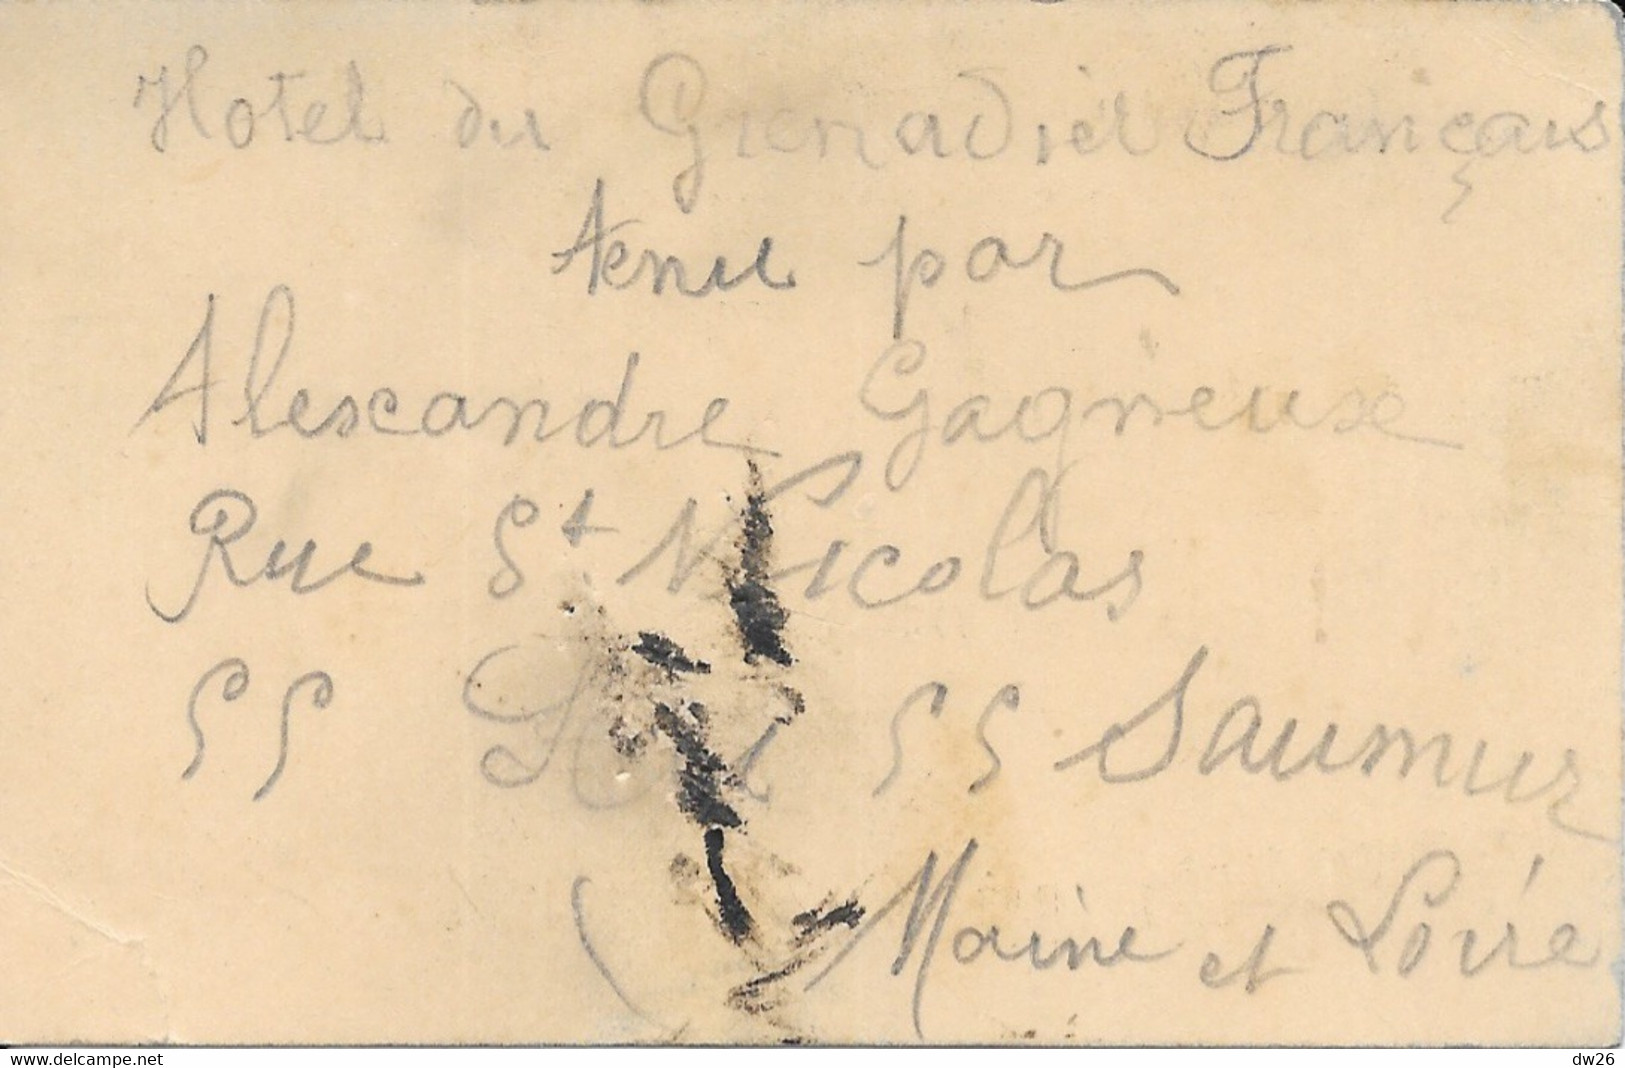 Hotel du Grenadier Français
tenu par
Alexandre Gagneux
Rue St Nicolas
55 55 Saumur
Maine et Loire
www.delcampe.net
dw26